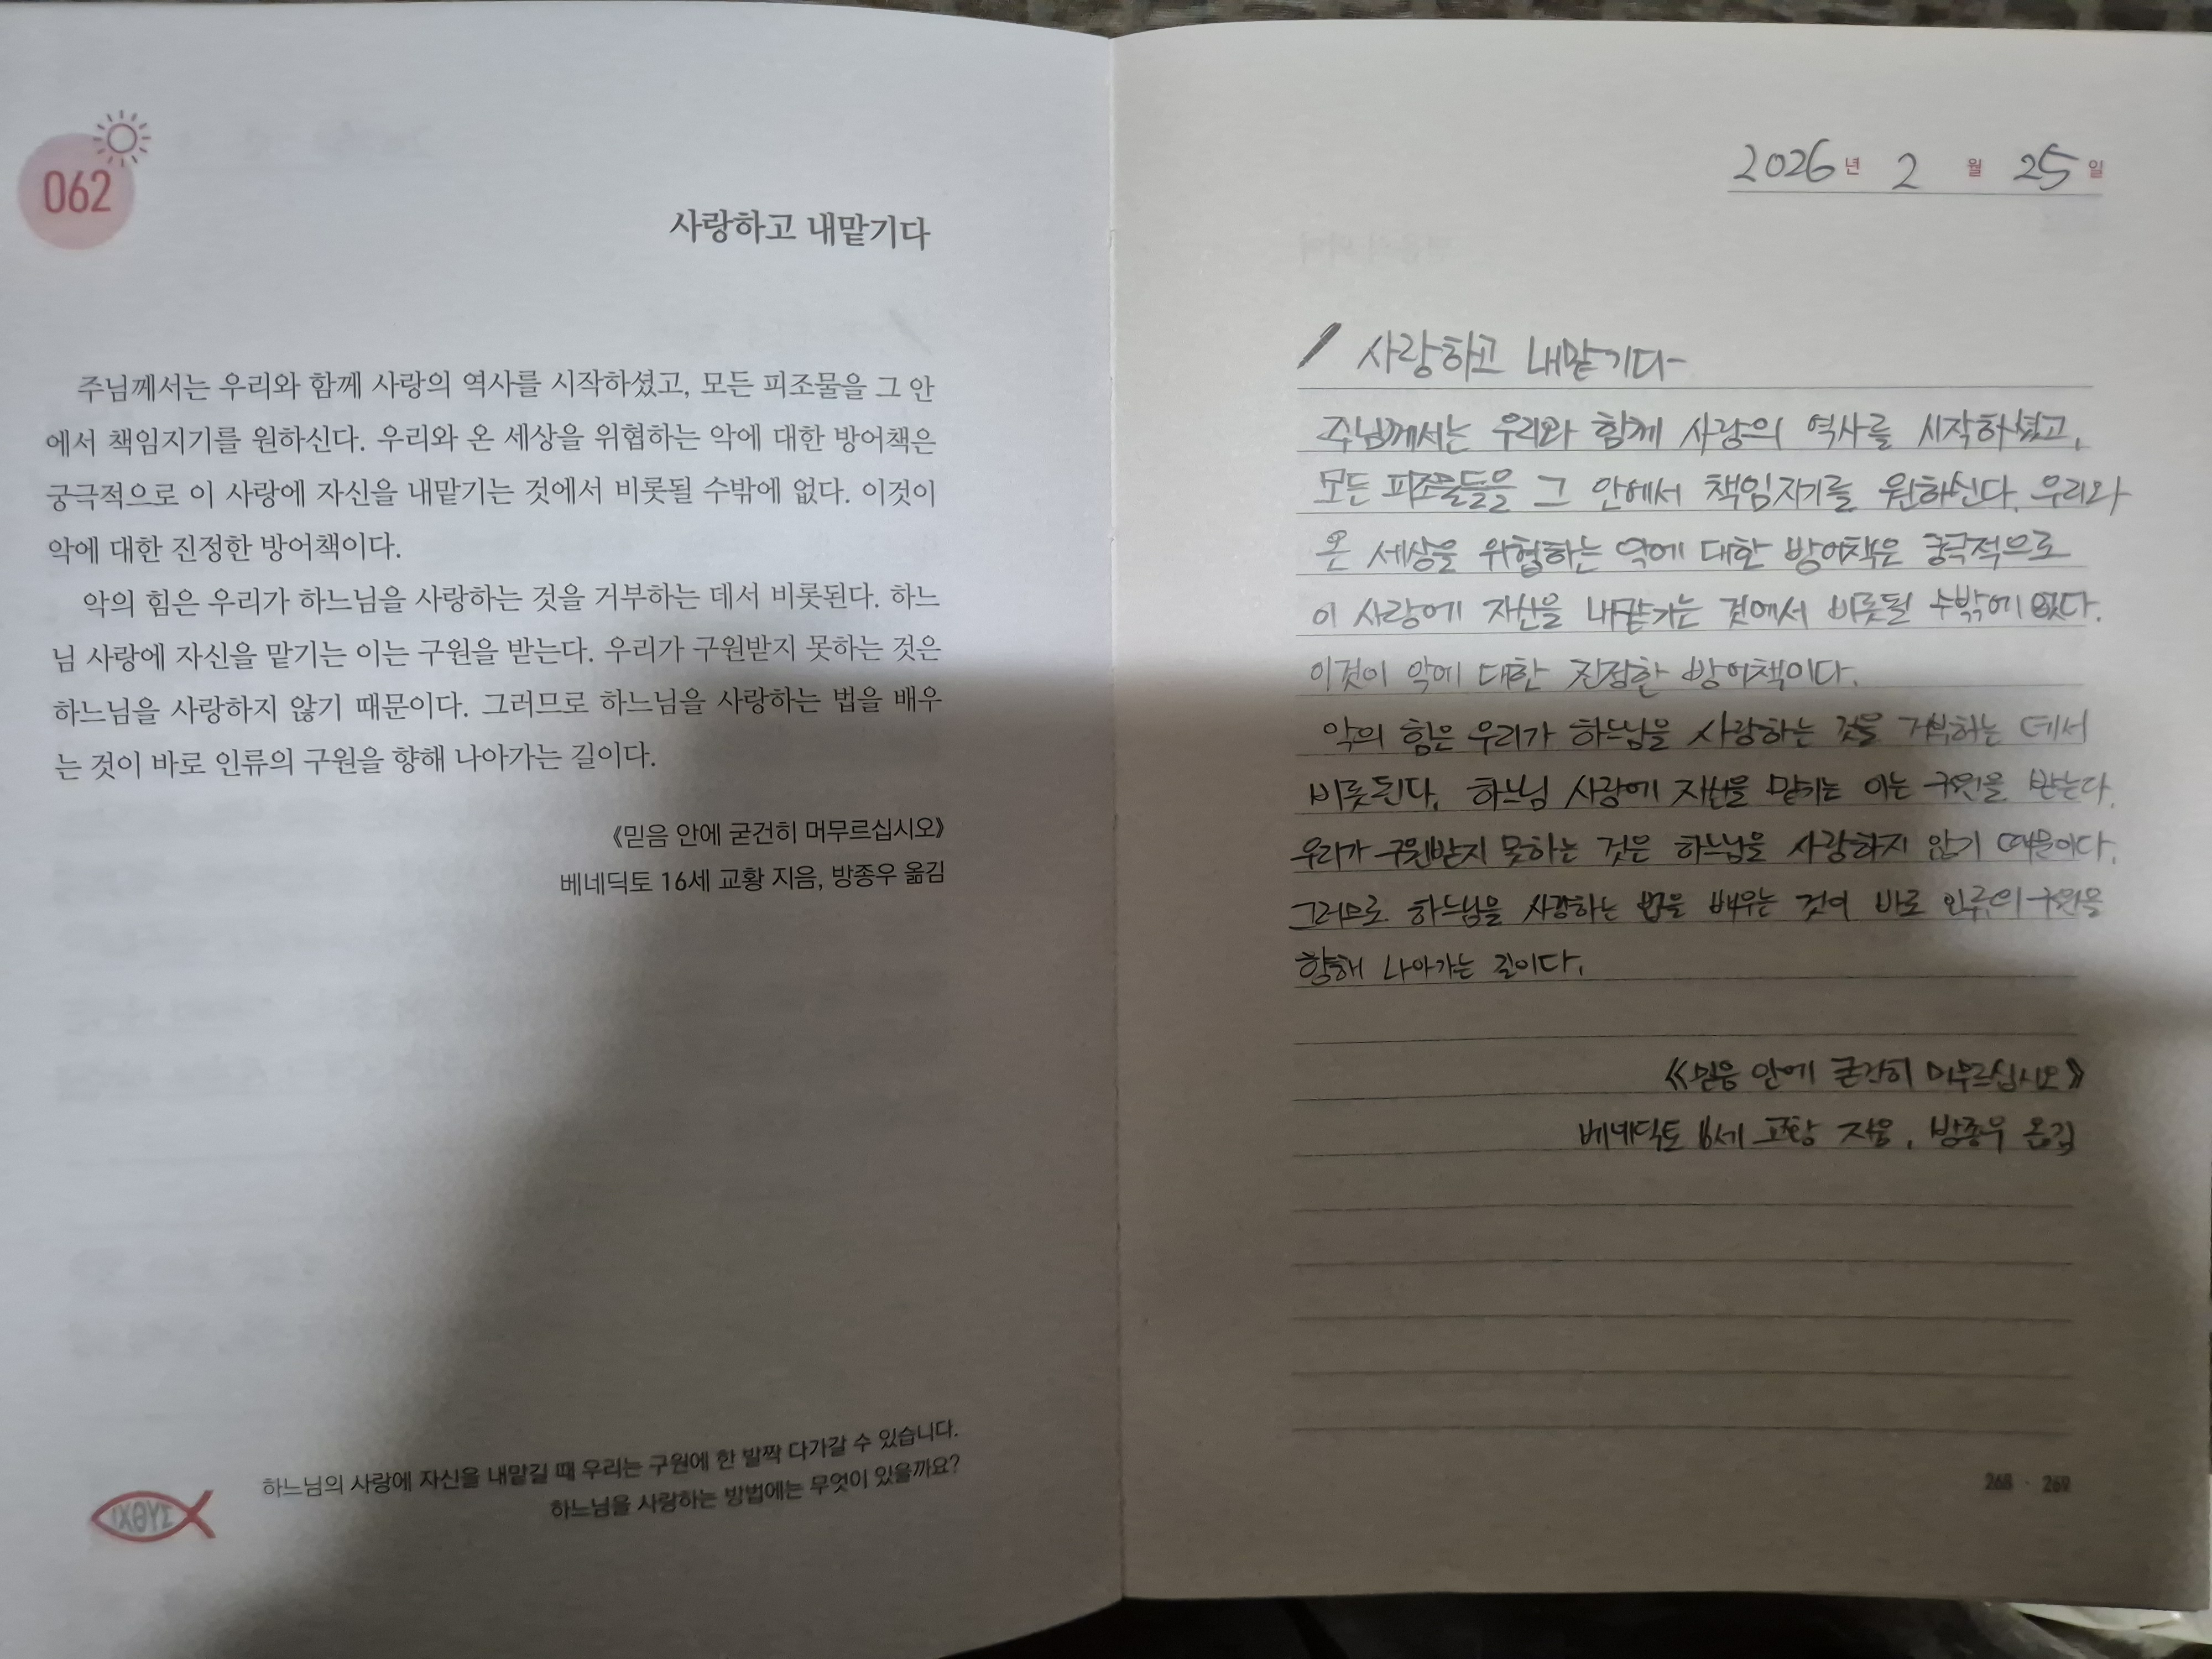 062
사랑하고 내맡기다
주님께서는 우리와 함께 사랑의 역사를 시작하셨고, 모든 피조물을 그 안
에서 책임지기를 원하신다. 우리와 온 세상을 위협하는 악에 대한 방어책은
궁극적으로 이 사랑에 자신을 내맡기는 것에서 비롯될 수밖에 없다. 이것이
악에 대한 진정한 방어책이다.
악의 힘은 우리가 하느님을 사랑하는 것을 거부하는 데서 비롯된다. 하느
님 사랑에 자신을 맡기는 이는 구원을 받는다. 우리가 구원받지 못하는 것은
하느님을 사랑하지 않기 때문이다. 그러므로 하느님을 사랑하는 법을 배우
는 것이 바로 인류의 구원을 향해 나아가는 길이다.
《믿음 안에 굳건히 머무르십시오》
베네딕토 16세 교황 지음, 방종우 옮김
하느님의 사랑에 자신을 내맡길 때 우리는 구원에 한 발짝 다가갈 수 있습니다.
하느님을 사랑하는 방법에는 무엇이 있을까요?
ΙΧΘΥΣ
2026년 2월 25일
사랑하고 내맡기다
주님께서는 우리와 함께 사랑의 역사를 시작하셨고,
모든 피조물들을 그 안에서 책임지기를 원하신다. 우리와
온 세상을 위협하는 악에 대한 방어책은 궁극적으로
이 사랑에 자신을 내맡기는 것에서 비롯될 수밖에 없다.
이것이 악에 대한 진정한 방어책이다.
악의 힘은 우리가 하느님을 사랑하는 것을 거부하는 데서
비롯된다. 하느님 사랑에 자신을 맡기는 이는 구원을 받는다.
우리가 구원받지 못하는 것은 하느님을 사랑하지 않기 때문이다.
그러므로 하느님을 사랑하는 법을 배우는 것이 바로 인류의 구원을
향해 나아가는 길이다.
《믿음 안에 굳건히 머무르십시오》
베네딕토 16세 교황 지음, 방종우 옮김
268 · 269